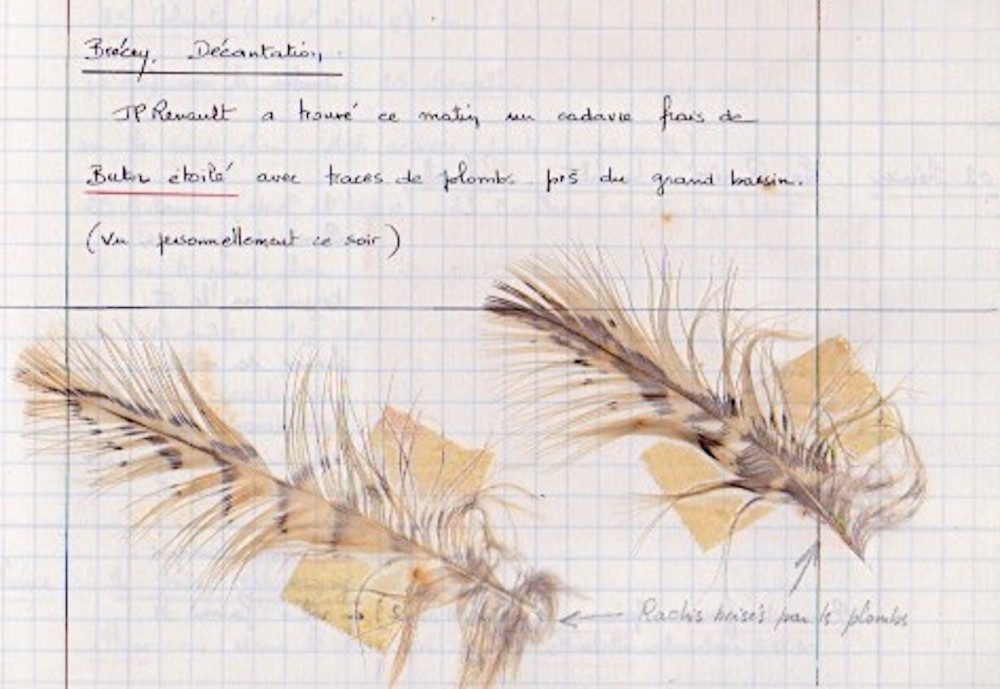 Brécey, Décantation.
JP Renault a trouvé ce matin un cadavre frais de
Butor étoilé avec traces de plombs près du grand bassin.
(Vu personnellement ce soir)
Rachis brisés par ls plombs